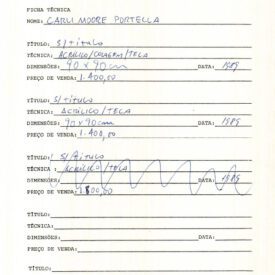 FICHA TÉCNICA
NOME: CARLI MOORE PORTELLA
TÍTULO: S/título
TÉCNICA: ACRÍLICO/COLAGEM/TELA
DIMENSÕES: 90 x 90 cm DATA: 1989
PREÇO DE VENDA: 1.400,00
TÍTULO: S/título
TÉCNICA: ACRÍLICO/TELA
DIMENSÕES: 90 x 90 cm DATA: 1989
PREÇO DE VENDA: 1.400,00
TÍTULO: S/título
TÉCNICA: ACRÍLICO/TELA
DIMENSÕES: DATA:
PREÇO DE VENDA:
TÍTULO:
TÉCNICA:
DIMENSÕES: DATA:
PREÇO DE VENDA:
TÍTULO: